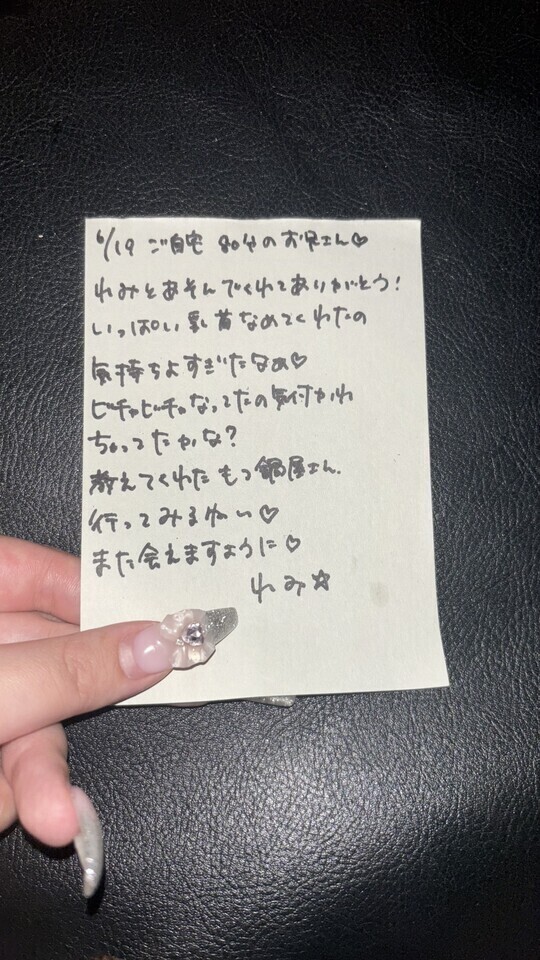 6/19 ご自宅 80分のお兄さん♡
れみとあそんでくれてありがとう!
いっぱい乳首なめてくれたの
気持ちよすぎたなぁ♡
ビチャビチャなってたの気付かれ
ちゃってたかな?
教えてくれたもつ鍋屋さん
行ってみるねい♡
また会えますように♡
れみ☆